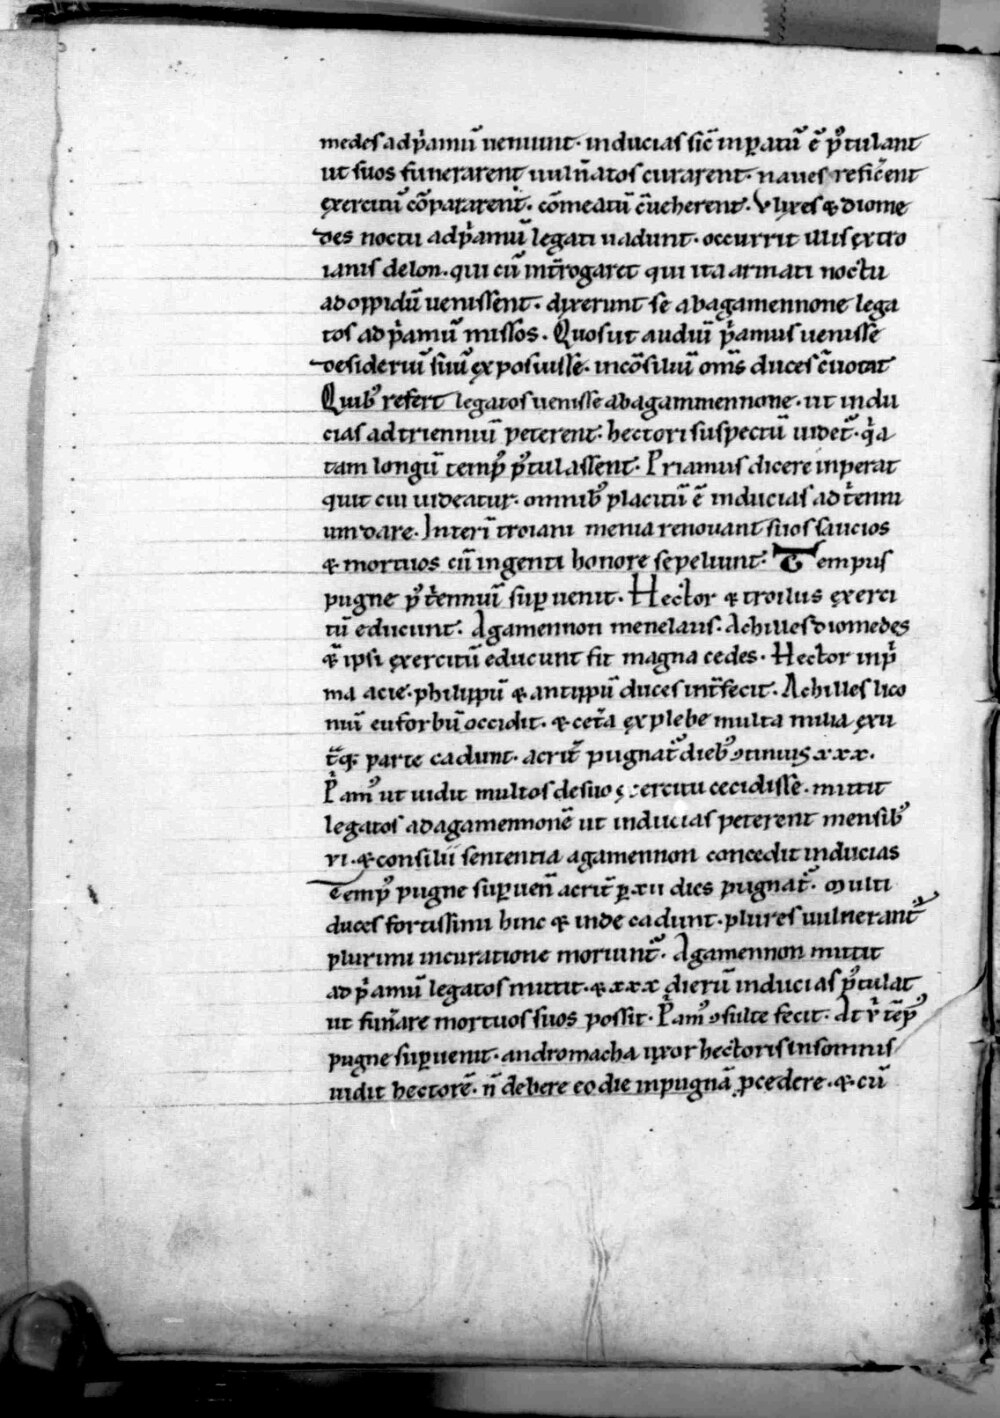 medes ad p̾amū ueniunt· inducias sic̄ inꝑatū ē p᷒tulant
ut suos funerarent uuln̄atos curarent· naues refic̄ent
ęxercitū cōpararent· cōmeatū c̄ueherent· Vlyxes & diome
des noctu ad p̾amū legati uadunt· occurrit illis ęx tro
ianis delon· qui cū int̄rogaret qui ita armati noctu
ad oppidū uenissent· dixerunt se ab agamennone lega
tos ad p̾amū missos· Quos ut audiuī p̾amus uenisse
desideriū suū ęxposuisse· in cōsiliū om̄s duces c̄uocat
Quib᷒ refert legatos uenisse ab agammennone· ut indu
cias ad trienniū peterent· hectori suspectū uidet᷑· q̾a
tam longū temp᷒ p᷒tulassent· Priamus dicere inperat
quit cui uideatur· omnib᷒ placitū ē inducias ad t̾enni
um dare· Interī troiani menia renouant suos saucios
& mortuos cū ingenti honore sepeliunt· Tempus
pugne p᷒ t̾enniū suꝑuenit· Hector & troilus ęxerci
tū educunt· Agamennon menelaus· Achilles diomedes
& ipsi ęxercitū educunt fit magna cedes· Hector in p̾
ma acie· philippū & antippū duces int̄fecit· Achilles lico
niū euforbū occidit· & cet̄a ęx plebe multa milia ęx u
t̾q; parte cadunt· acrit̄ pugnat᷑ dieb᷒ ↄtinuis xxx·
P̾am᷒ ut uidit multos de suo ęxercitu cecidisse· mittit
legatos ad agamennonē ut inducias peterent mensib᷒
vi· & consilii sententia agamennon concedit inducias
Temp᷒ pugne suꝑuen̄ acrit̄ ꝑ xii dies pugnat᷑· Multi
duces fortissimi hinc & inde cadunt· plures uulnerant᷑
plurimi in curatione moriunt᷑· Agamennon mittit
ad p̾amū legatos mittit· & xxx dierū inducias p᷒tulat
ut fun̄are mortuos suos possit· P̾am᷒ ↄsulte fecit· At v̾ tēp᷒
pugne suꝑuenit· andromacha uxor hectoris in somnis
uidit hectorē· n̄ debere eo die in pugnā ꝓcedere· & cū